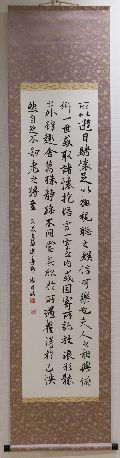 所以遊目騁懷足以極視聽之娛信可樂也夫人之相與俯
仰一世或取諸懷抱悟言一室之内或因寄所託放浪形骸
之外雖趣舍萬殊靜躁不同當其欣於所遇暫得於己快
然自足不知老之將至